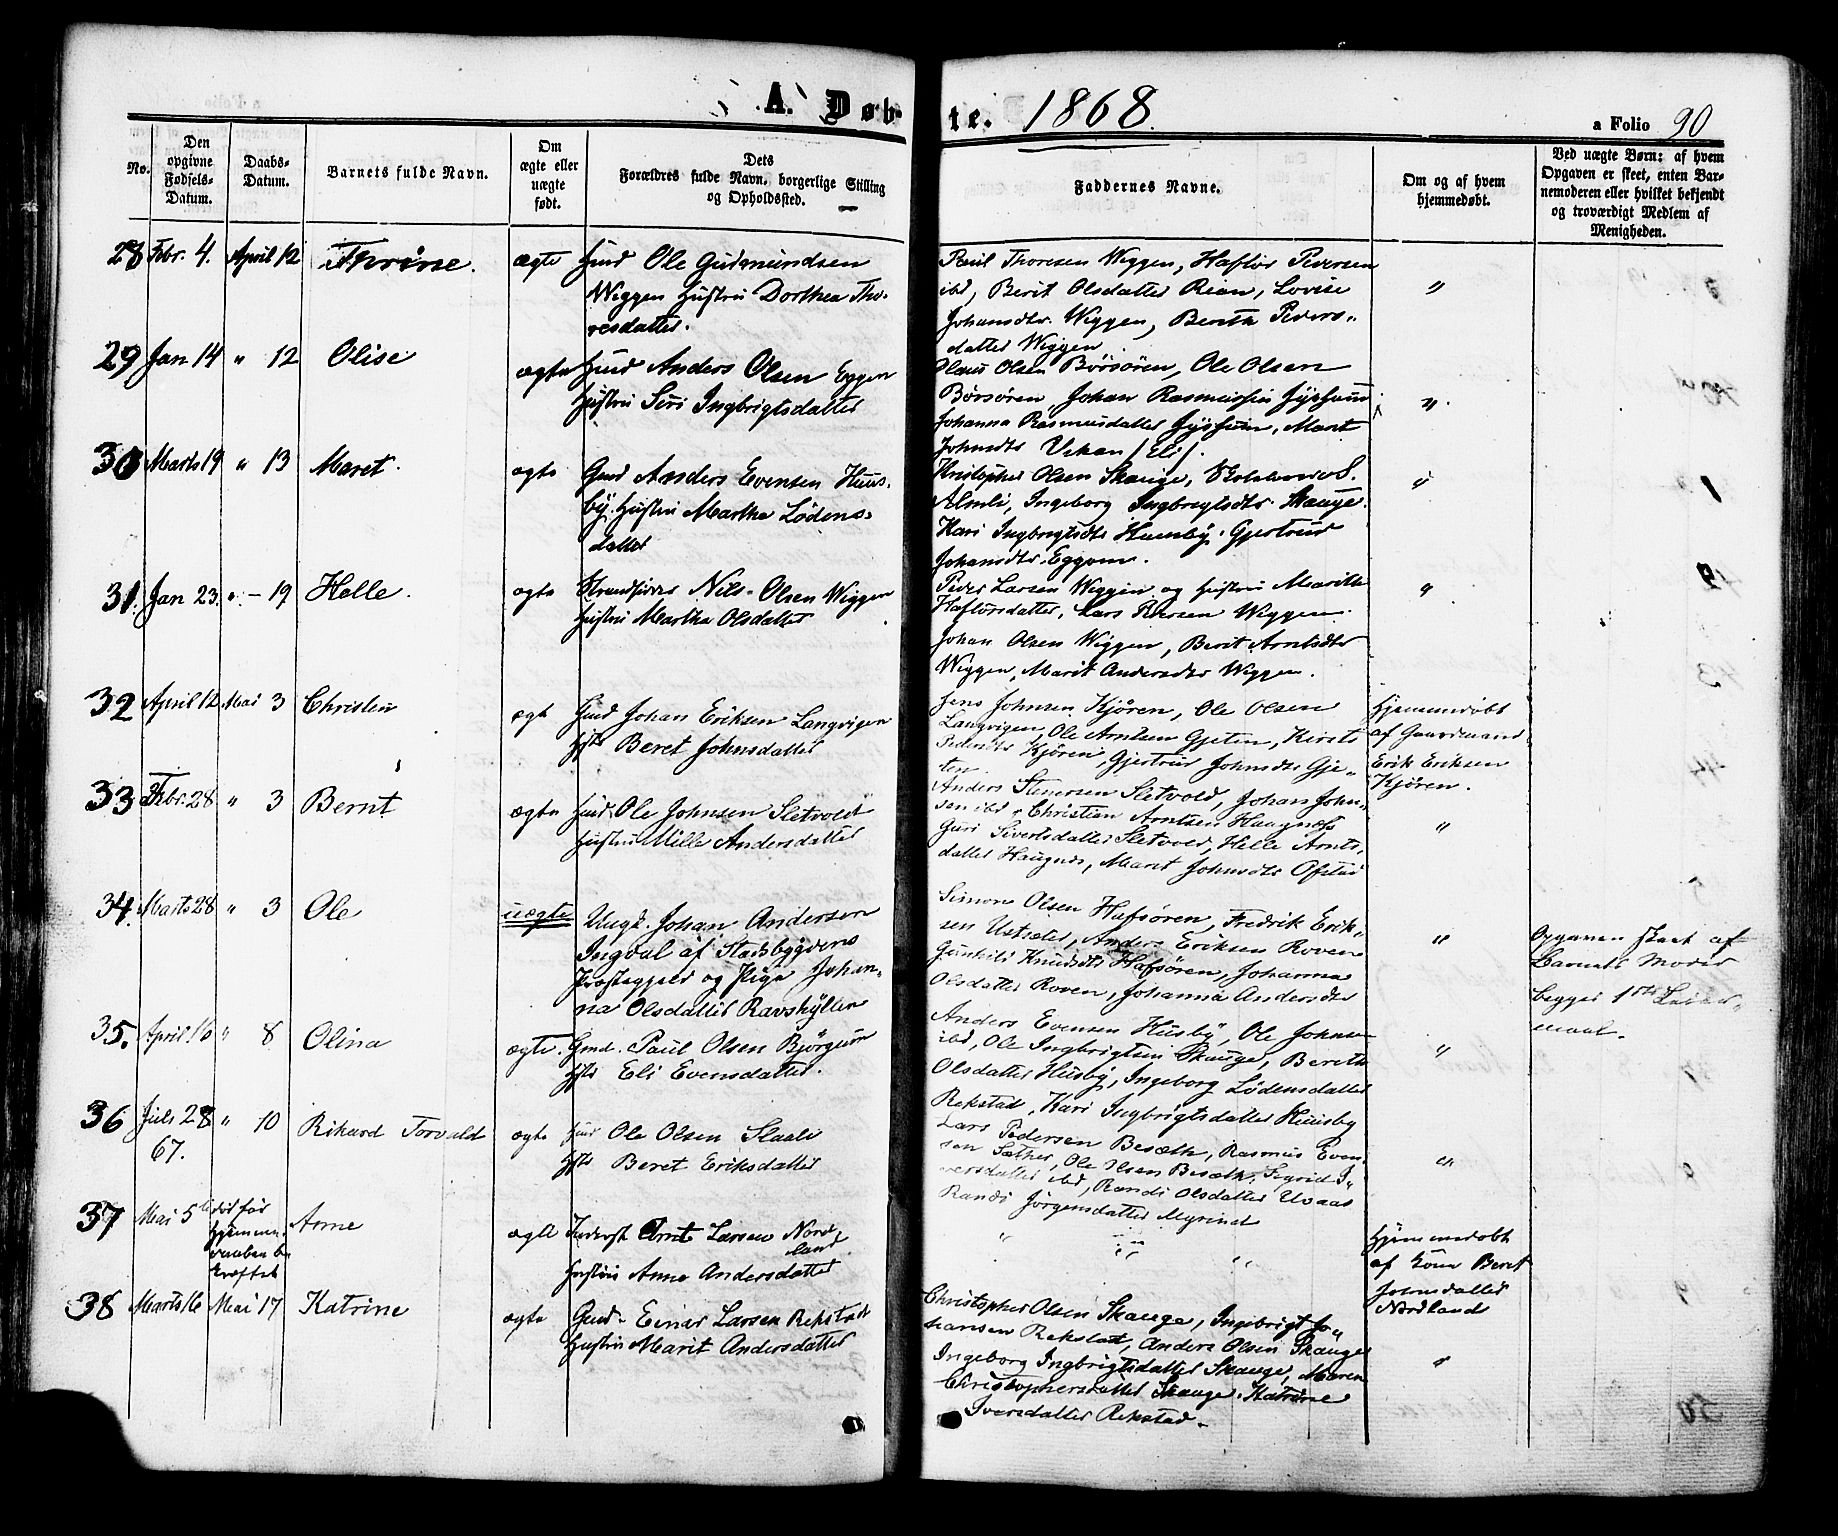 A. Døb-
te. 1868.
a Folio 90
No.
Den opgivne Fødsels-Datum.
Daabs-Datum.
Barnets fulde Navn.
Om ægte eller uægte født.
Dets Forældres fulde Navn, borgerlige Stilling og Opholdssted.
Faddernes Navne.
Om og af hvem hjemmedøbt.
Ved uægte Børn: af hvem Opgaven er skeet, enten Barnemoderen eller hvilket bekjendt og troværdigt Medlem af Menigheden.
28 Febr. 4. April 12 Thrine. ægte Gmd Ole Gudmundsen
Wiggen Hustru Dorthea Tho-
resdatter.
Paul Thoresen Wiggen, Haflor Pedersen
ibd, Berit Olsdatter Rian, Lovise
Johansdtr. Wiggen, Berith Peders-
datter Wiggen
"
29 Jan 14 " 12 Olise ægte Gmd Anders Olsen Eggen
Hustru Siri Ingbrigtsdatter
Olaus Olsen Börsören, Ole Olsen
Börsören, Johan Rasmussen
Johanna Rasmusdatter Marit
Johnsdtr (Eli).
"
30 Marts 19 " 13 Maret. ægte Gmd Anders Evensen Huus-
by. Hustru Martha Lödens-
datter
Kristopher Olsen Skauge,
Almli, Ingeborg Ingbrigtsdtr Skauge.
Kari Ingbrigtsdtr Huusby. Gjertrud
Johansdtr. Eggen.
"
31. Jan 23. " - 19 Helle. ægte Strandsidder Nils Olsen Wiggen
Hustru Martha Olsdatter
Peder Larsen Wiggen og Hustru Marith
Haflorsdatter, Lars Wiggen.
Johan Olsen Wiggen, Berit Arntsdtr
Wiggen, Marit Andersdtr Wiggen.
"
32 April 12 Mai 3 Christen ægte Gmd Johan Eriksen Langvigen
Hstr Beret Johnsdatter
Jens Johnsen Kjören, Ole Olsen
Langvigen, Ole Arntsen Gjeten, Kirsti
Pedersdtr Kjören, Gjertrud Johnsdtr Gje-
ten.
Hjemmedøbt
af Gaardmand
Erik Eriksen
Kjören.
33 Febr. 28 " 3 Bernt ægte Gmd. Ole Johnsen Sletvold
Hustru Mille Andersdatter
Anders Stenersen Sletvold, Johan John-
sen ibd, Christian Arntsen Haugnæs
Guri Sivertsdatter Sletvold, Helle Arnts-
datter Haugnæs, Maret Johnsdtr Ofstad
"
34. Marts 28 " 3 Ole uægte Ungk. Johan Andersen
Ingdal af Stadsbygdens
Præstegjeld og Pige Johan-
na Olsdatter Ravskyllen
Simon Olsen Hafsören, Fredrik Erik-
sen Ustsæter, Anders Eriksen Roven
Gunhild Knudsdtr Hafsören, Johanna
Olsdatter Roven, Johanna Andersdtr
"
Opgaven skeet af
Barnets Moder
begges 1ste Leier-
maal.
35. April 16 " 8 Olina ægte. Gmd. Paul Olsen Björgum
Hstr Eli Evensdatter.
Anders Evensen Husby, Ole Johnsen
ibd, Ole Ingbrigtsen Skauge, Berith
Olsdatter Husby, Ingeborg Lödensdatter
Rekstad, Kari Ingbrigtsdatter Huusby
"
36 Juli 28 " 10 Rikard Torvald ægte Gmd Ole Olsen Slaali
67. Hstr Beret Eriksdatter
Lars Pedersen Besæth, Rasmus Even-
sen Sæther, Ole Olsen Besæth, Sigrid I-
versdatter ibd, Randi Olsdatter Uvaas
Randi Jörgensdatter Myrind
"
37 Mai 5te död før
Hjemme-
daaben be-
kræftet Anne ægte Inderst Arnt Larsen Nord-
land
Hustru Anne Andersdatter
" " "
Hjemmedøbt
af Kone Beret
Johnsdatter
Nordland
38 Marts 16 Mai 17 Katrine ægte Gmd. Einar Larsen Rekstad
Hustru Marit Andersdatter
Christopher Olsen Skauge, Ingebrigt Jo-
hansen Rekstad, Anders Olsen Skauge
Ingeborg Ingbrigtsdatter Skauge, Maren
Christophersdatter Skauge. Katrine
Iversdatter Rekstad.
"